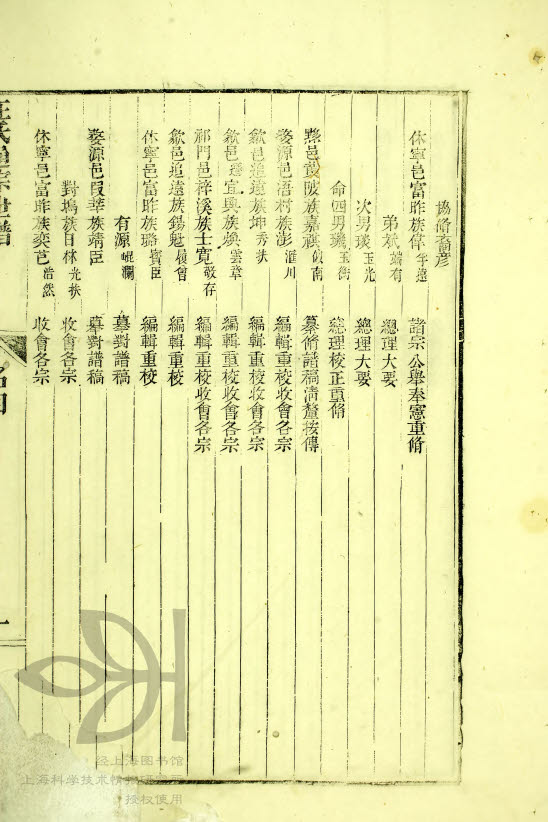 協脩裔彥
休寧邑富昨族偉字遠 諸宗公舉奉憲重脩
弟斌 總理大要
次男琰玉光 總理大要
命四男璣玉衡 總理校正重脩
黟邑黃陂族嘉祺 纂脩譜稿清釐按傳
婺源邑浯村族澎淮川 編輯重校收會各宗
歙邑追遠族坤秀扶 編輯重校收會各宗
歙邑遷宜興族煥雲章 編輯重校收會各宗
祁門邑梓溪族士寬敬存 編輯重校收會各宗
歙邑追遠族錫魁 編輯重校
休寧邑富昨族璐實臣 編輯重校
有源崐瀾 摹對譜稿
婺源邑段莘族靖臣 摹對譜稿
對塢族日林光扶 收會各宗
休寧邑富昨族奕芑浩然 收會各宗
汪氏通宗世譜
名目
一
经上海图书馆
上海科学技术情报研究所
授权使用